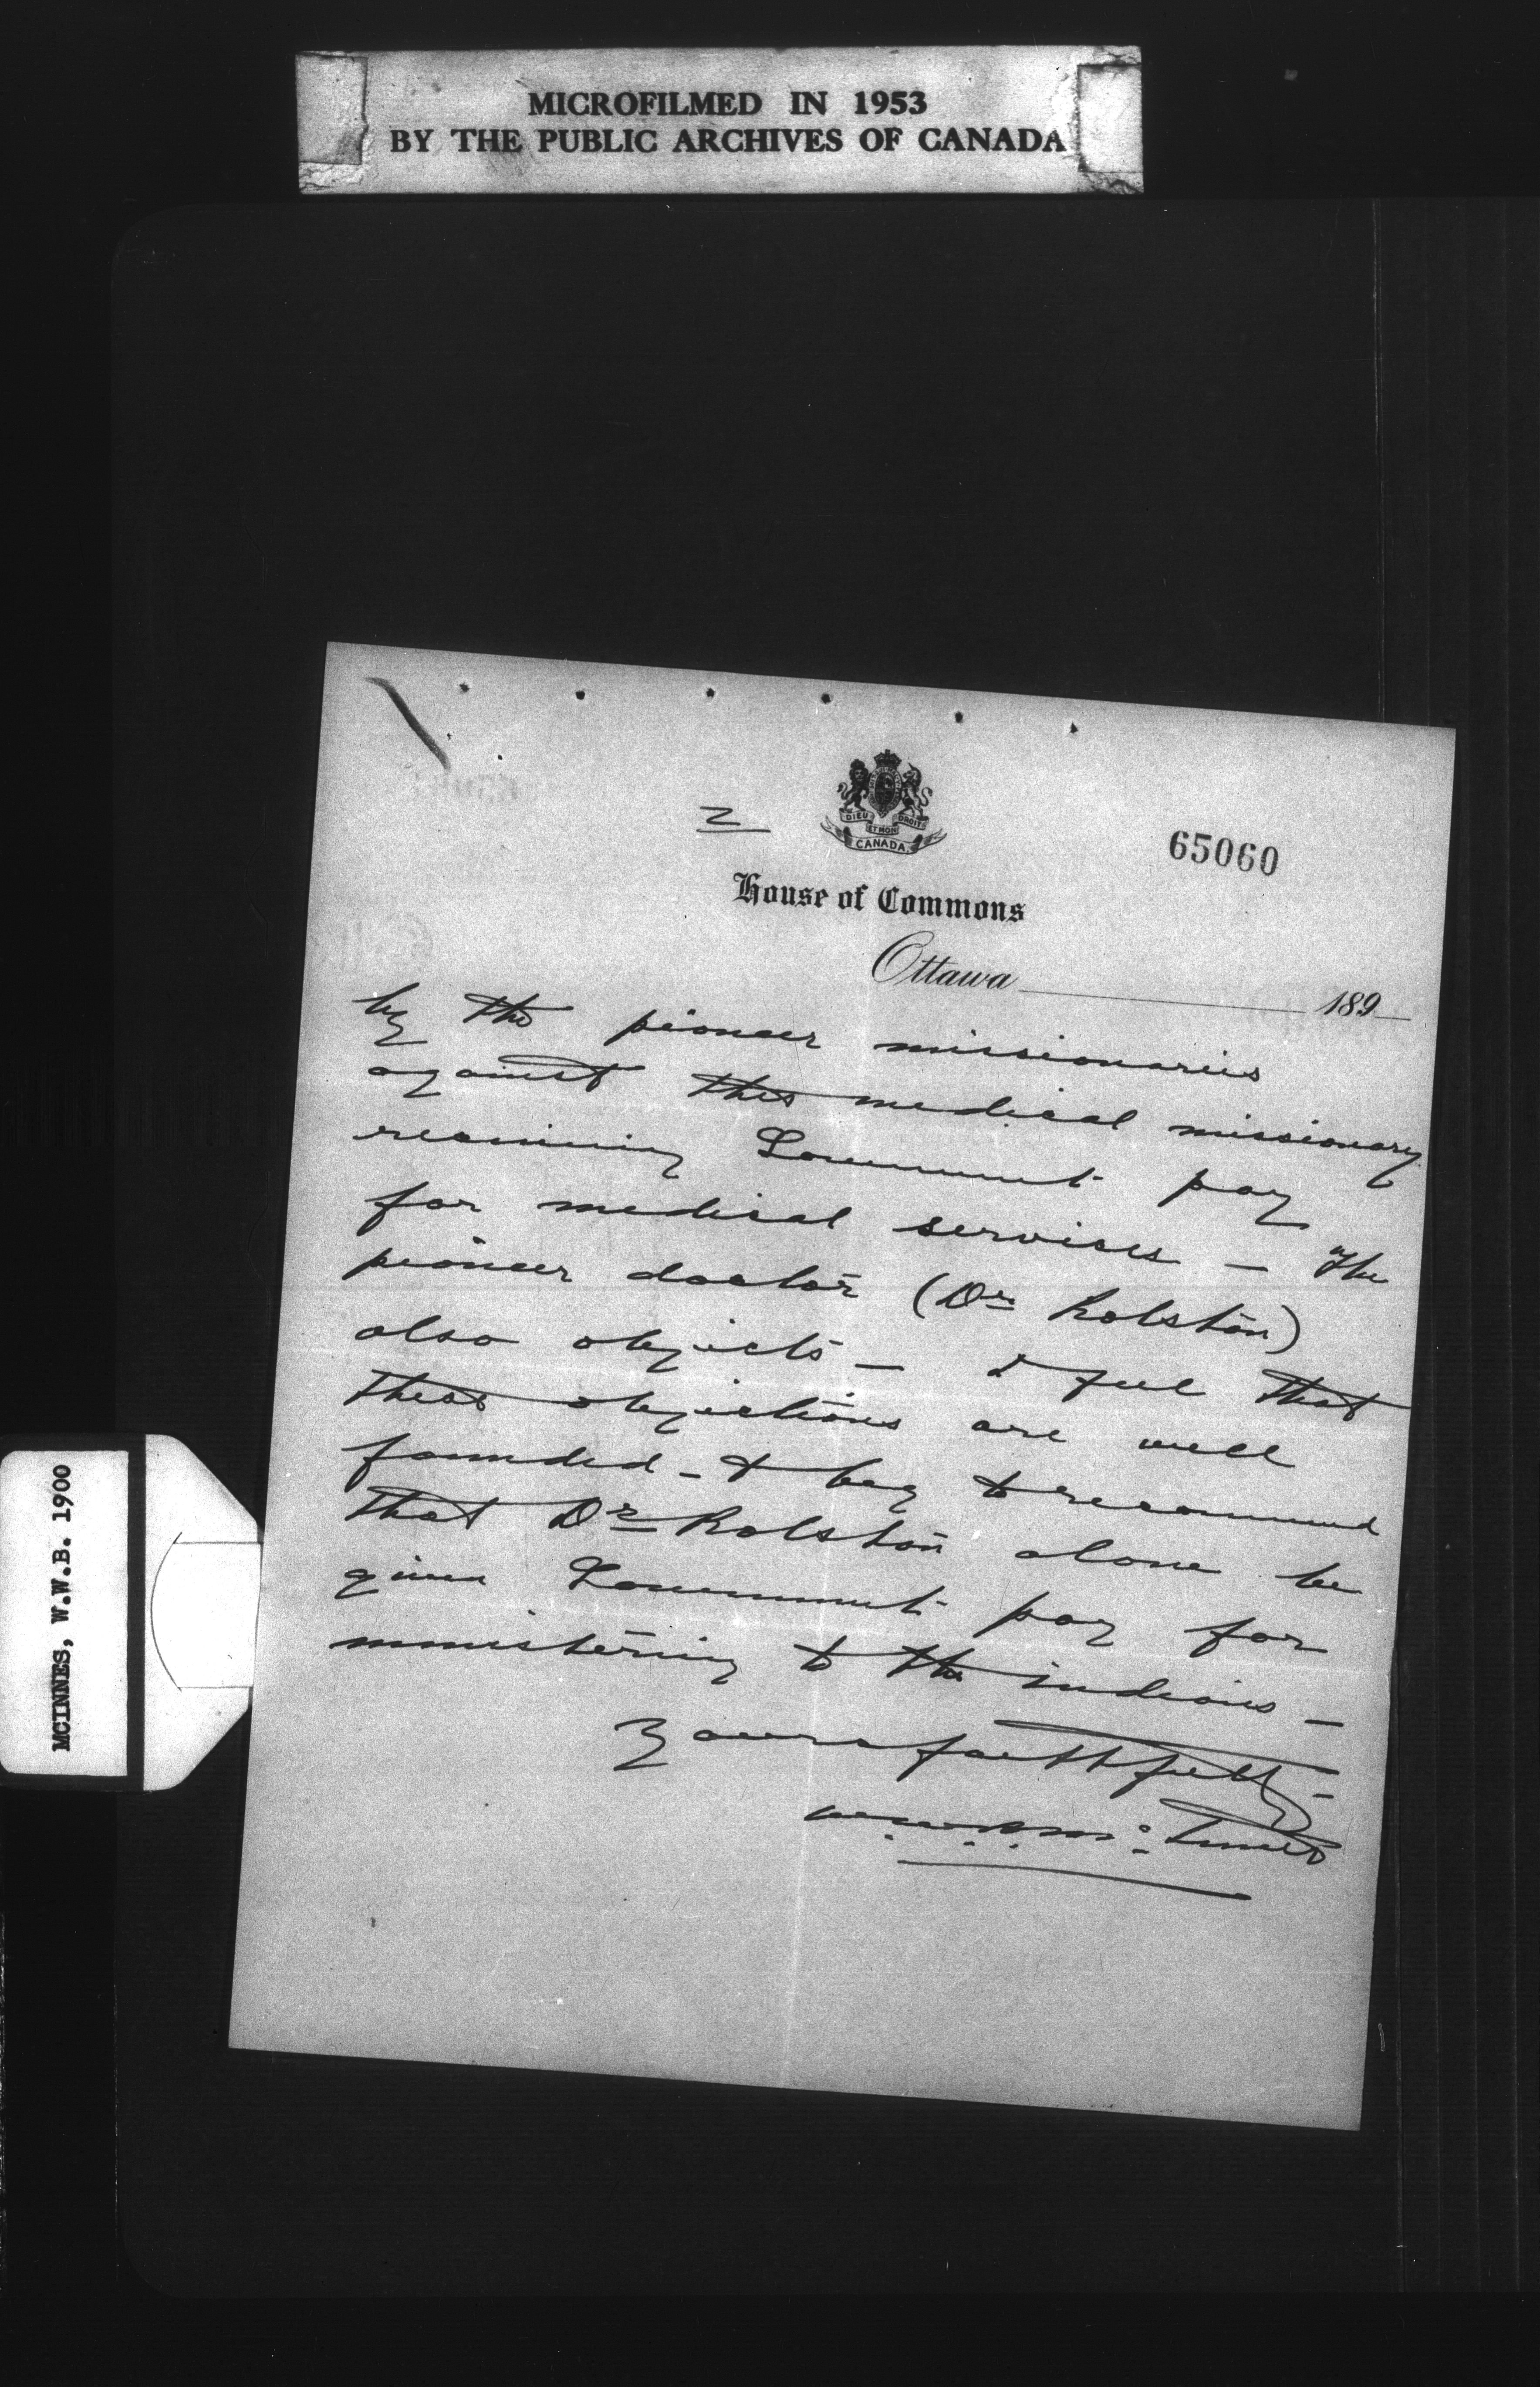 MICROFILMED IN 1953
BY THE PUBLIC ARCHIVES OF CANADA
2
DIEU ET MON DROIT
CANADA
65060
House of Commons
Ottawa 189
by the pioneer missionaries
against this medical missionary
receiving Government pay
for medical services — The
pioneer doctor (Dr Rolston)
also objects — I feel that
these objections are well
founded — & beg to recommend
that Dr Rolston alone be
given Government pay for
ministering to the indians —
Yours faithfully —
W.W.B. McInnes
MCINNES, W.W.B. 1900